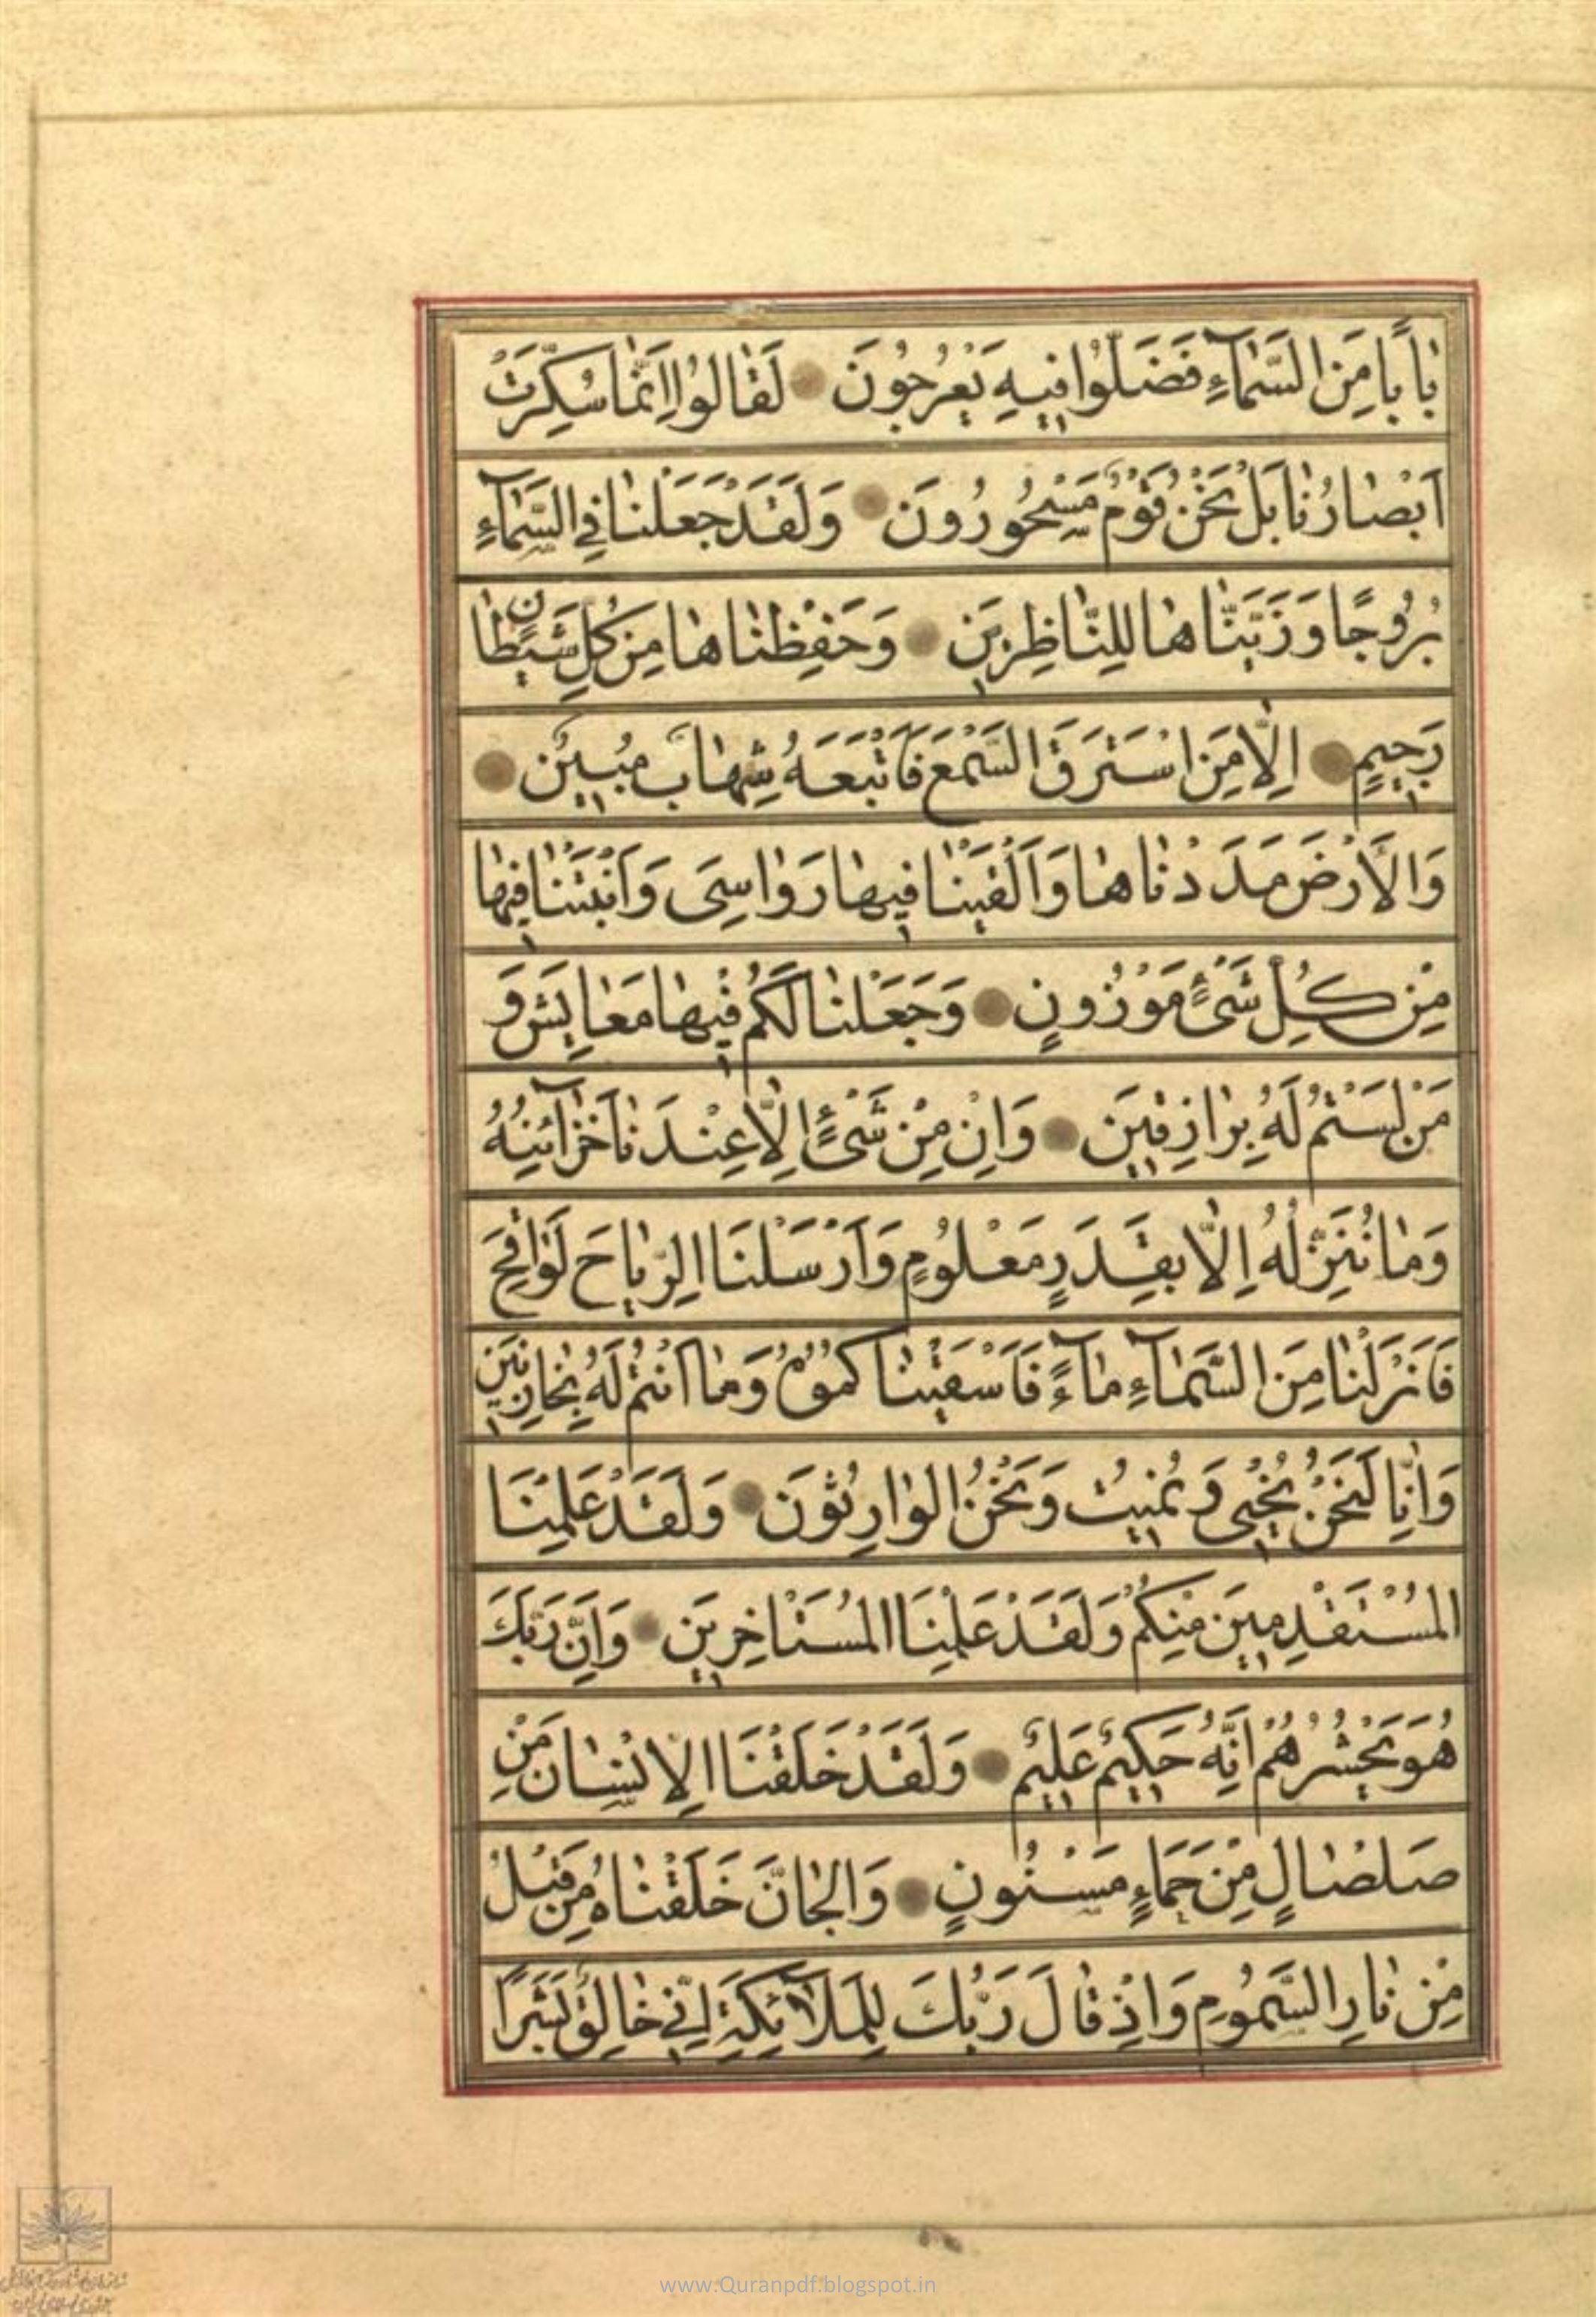 بٰابًا مِنَ السَّمٰآءِ فَضَلُّوا فيهِ يَعْرُجُونَ لَقٰالُوا اِنَّمٰا سُكِّرَتْ
اَبْصٰارُنٰا بَلْ نَحْنُ قَوْمٌ مَسْحُورُونَ وَلَقَدْ جَعَلْنٰا فِي السَّمٰآءِ
بُرُوجًا وَزَيَّنّٰاهٰا لِلنّٰاظِرينَ وَحَفِظْنٰاهٰا مِنْ كُلِّ شَيْطٰانٍ
رَجيمٍ اِلّٰا مَنِ اسْتَرَقَ السَّمْعَ فَاَتْبَعَهُ شِهٰابٌ مُبينٌ
وَالْاَرْضَ مَدَدْنٰاهٰا وَاَلْقَيْنٰا فيهٰا رَوٰاسِيَ وَاَنْبَتْنٰا فيهٰا
مِنْ كُلِّ شَيْءٍ مَوْزُونٍ وَجَعَلْنٰا لَكُمْ فيهٰا مَعٰايِشَ وَ
مَنْ لَسْتُمْ لَهُ بِرٰازِقينَ وَاِنْ مِنْ شَيْءٍ اِلّٰا عِنْدَنٰا خَزٰآئِنُهُ
وَمٰا نُنَزِّلُهُ اِلّٰا بِقَدَرٍ مَعْلُومٍ وَاَرْسَلْنَا الرِّيٰاحَ لَوٰاقِحَ
فَاَنْزَلْنٰا مِنَ السَّمٰآءِ مٰآءً فَاَسْقَيْنٰاكُمُوهُ وَمٰا اَنْتُمْ لَهُ بِخٰازِنينَ
وَاِنّٰا لَنَحْنُ نُحْيي وَنُميتُ وَنَحْنُ الْوٰارِثُونَ وَلَقَدْ عَلِمْنَا
الْمُسْتَقْدِمينَ مِنْكُمْ وَلَقَدْ عَلِمْنَا الْمُسْتَاْخِرينَ وَاِنَّ رَبَّكَ
هُوَ يَحْشُرُهُمْ اِنَّهُ حَكيمٌ عَليمٌ وَلَقَدْ خَلَقْنَا الْاِنْسٰانَ مِنْ
صَلْصٰالٍ مِنْ حَمَاءٍ مَسْنُونٍ وَالْجٰانَّ خَلَقْنٰاهُ مِنْ قَبْلُ
مِنْ نٰارِ السَّمُومِ وَاِذْ قٰالَ رَبُّكَ لِلْمَلٰآئِكَةِ اِنّي خٰالِقٌ بَشَرًا
www.Quranpdf.blogspot.in